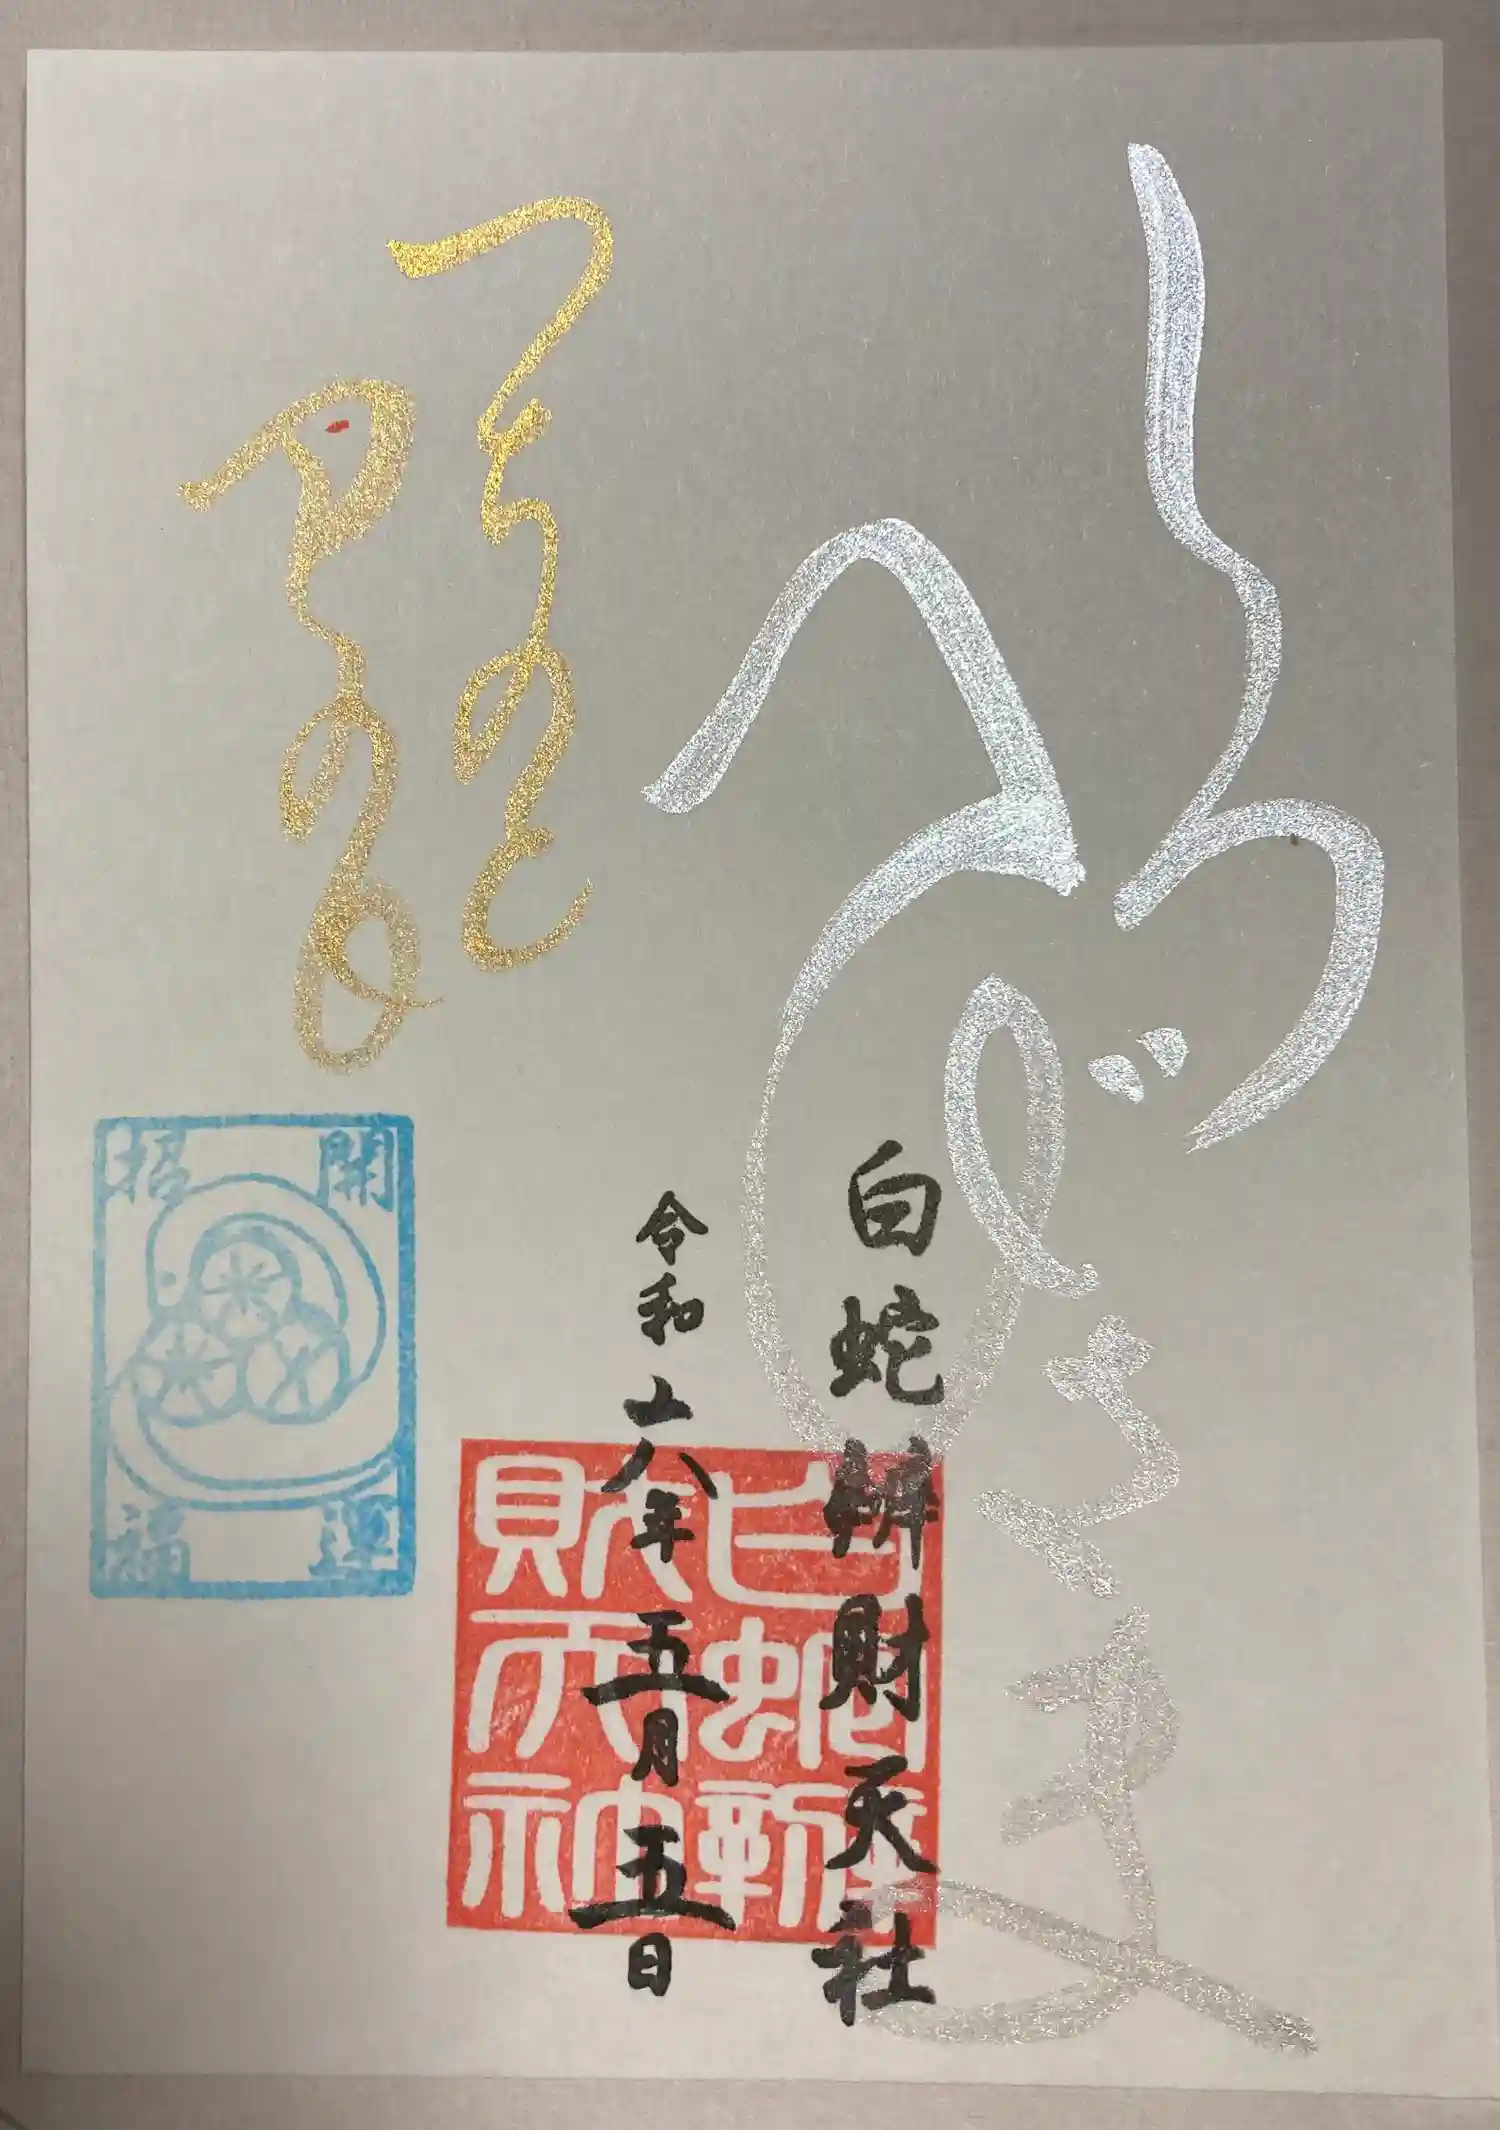 しろへびさま
つちのと
巳の日
白蛇辨財天社
令和六年五月五日
白蛇辨
財天
開運
招福